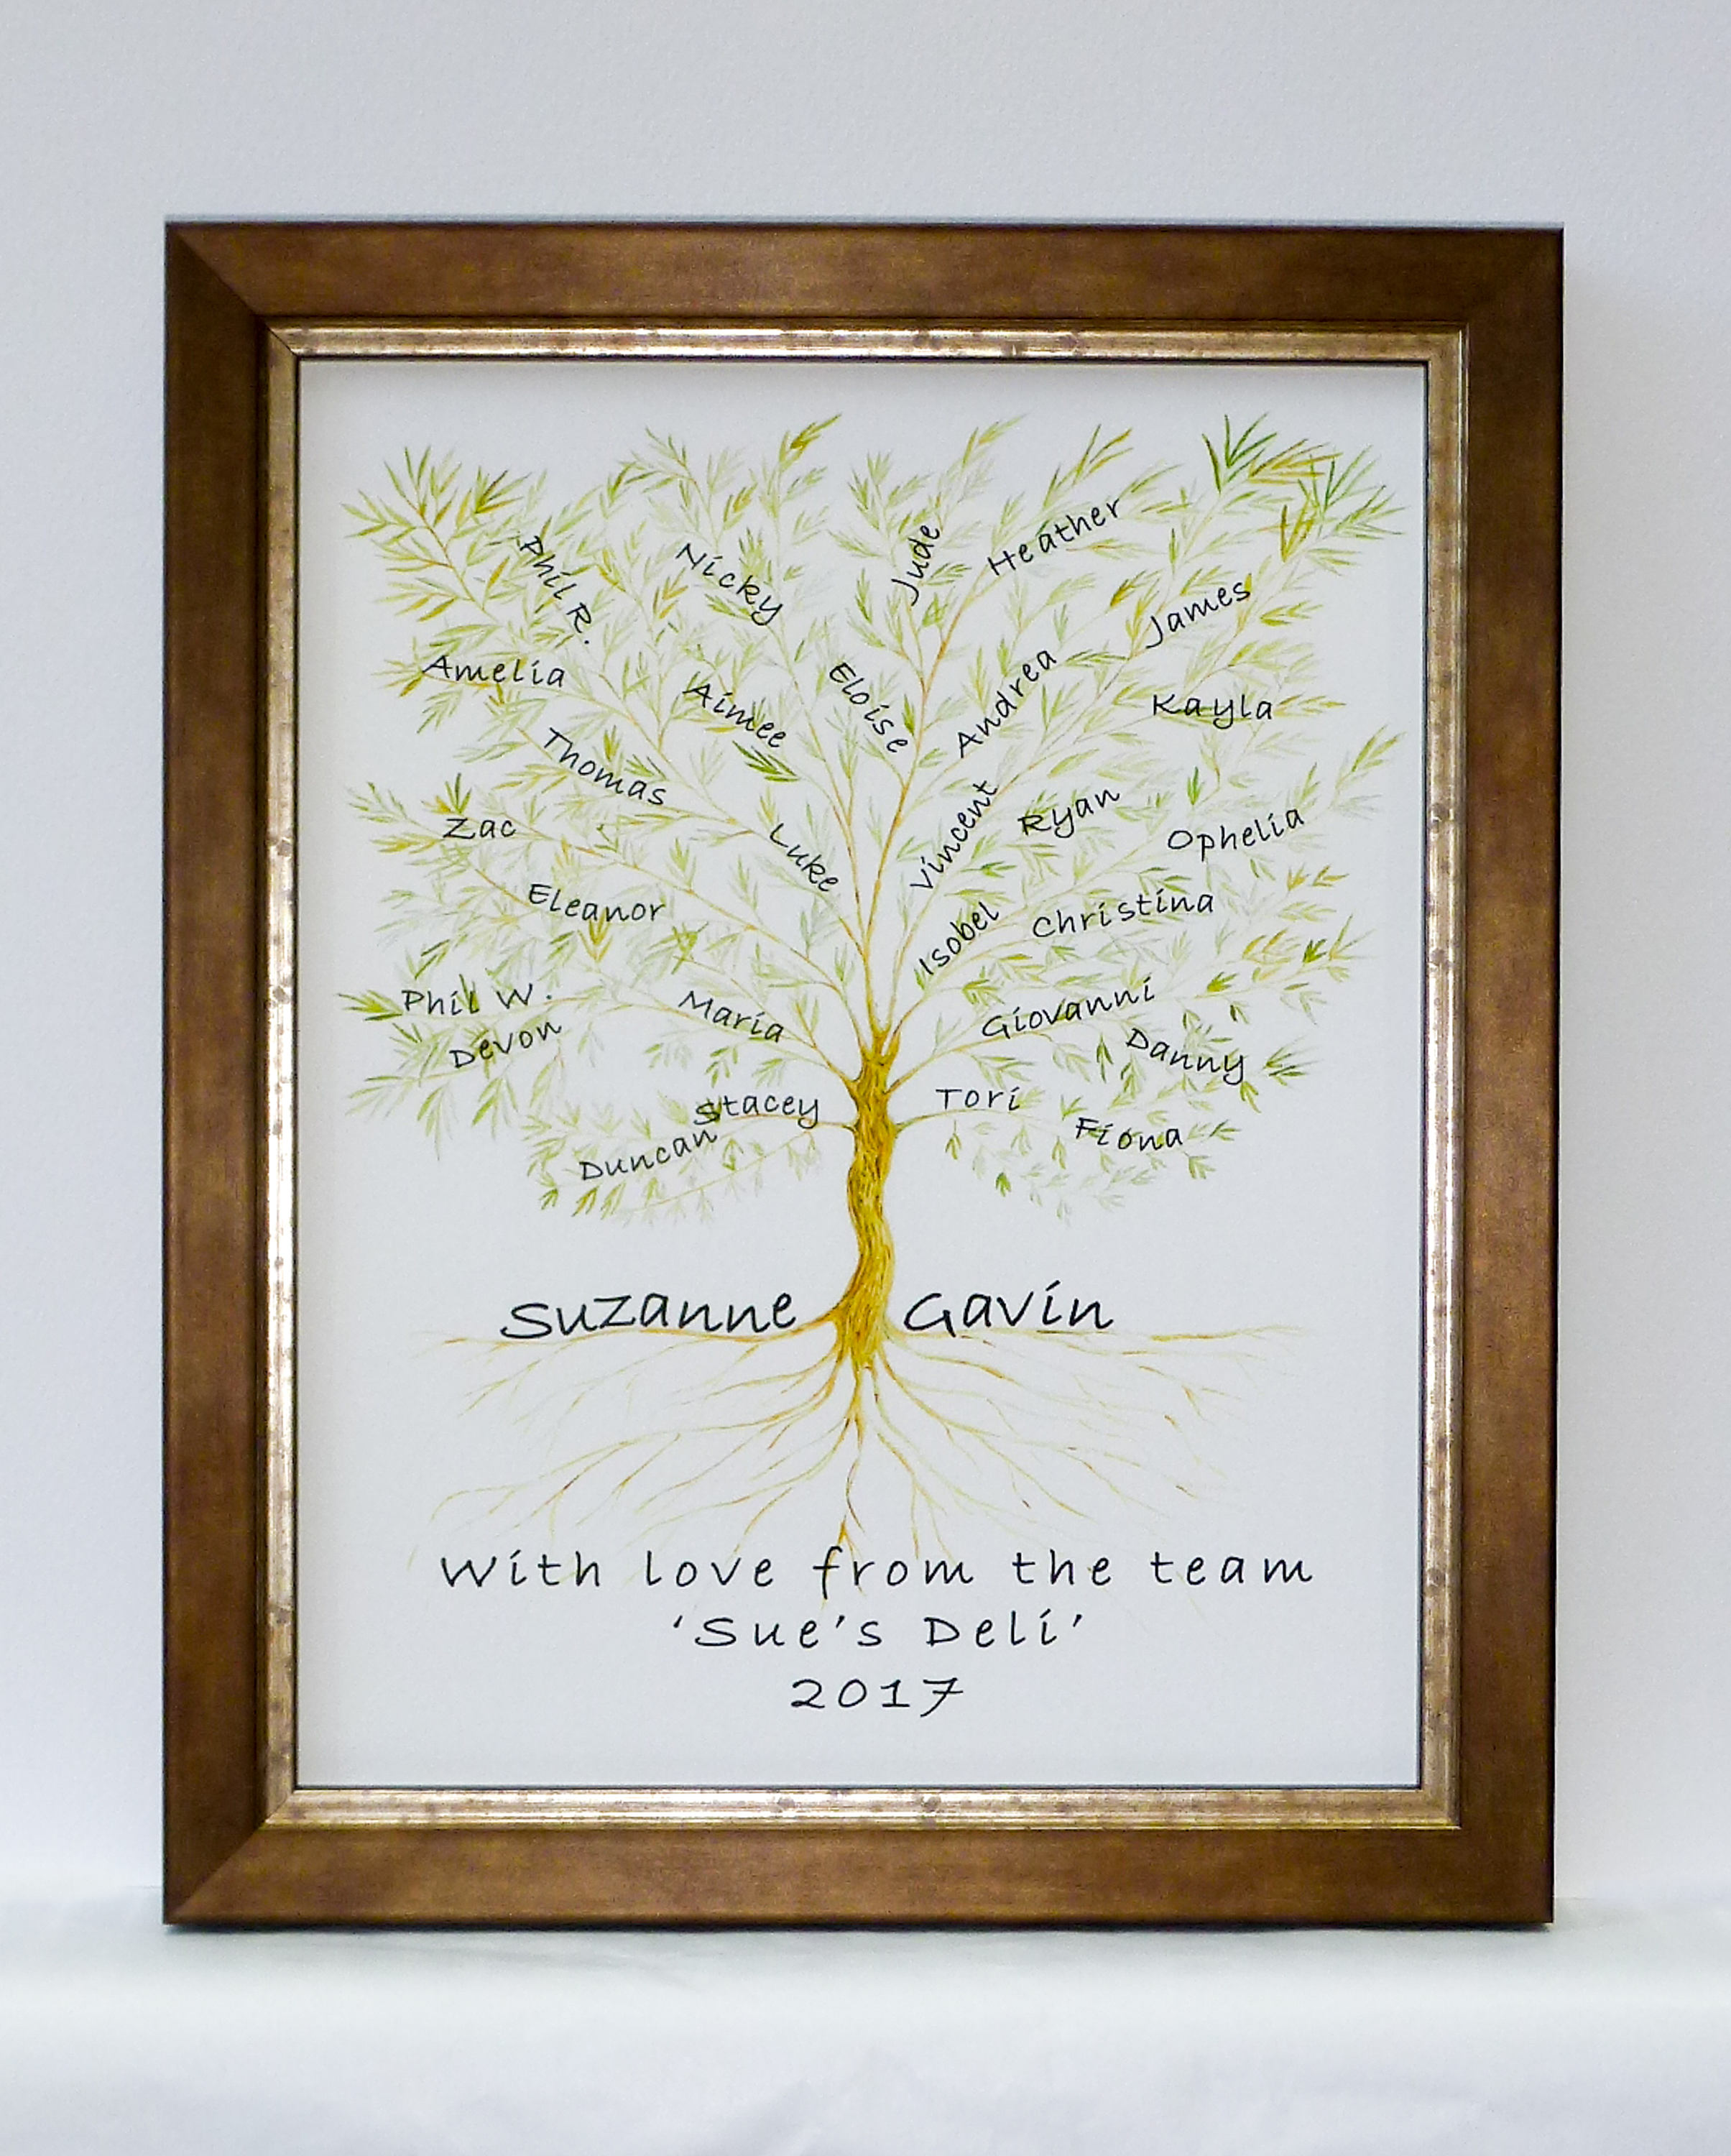 Jude
Heather
Phil R.
Nicky
James
Amelia
Aimee
Eloise
Andrea
Kayla
Thomas
Zac
Luke
Vincent
Ryan
Ophelia
Eleanor
Isobel
Christina
Phil W.
Maria
Giovanni
Devon
Danny
Stacey
Tori
Duncan
Fiona
Suzanne Gavin
With love from the team
‘Sue’s Deli’
2017